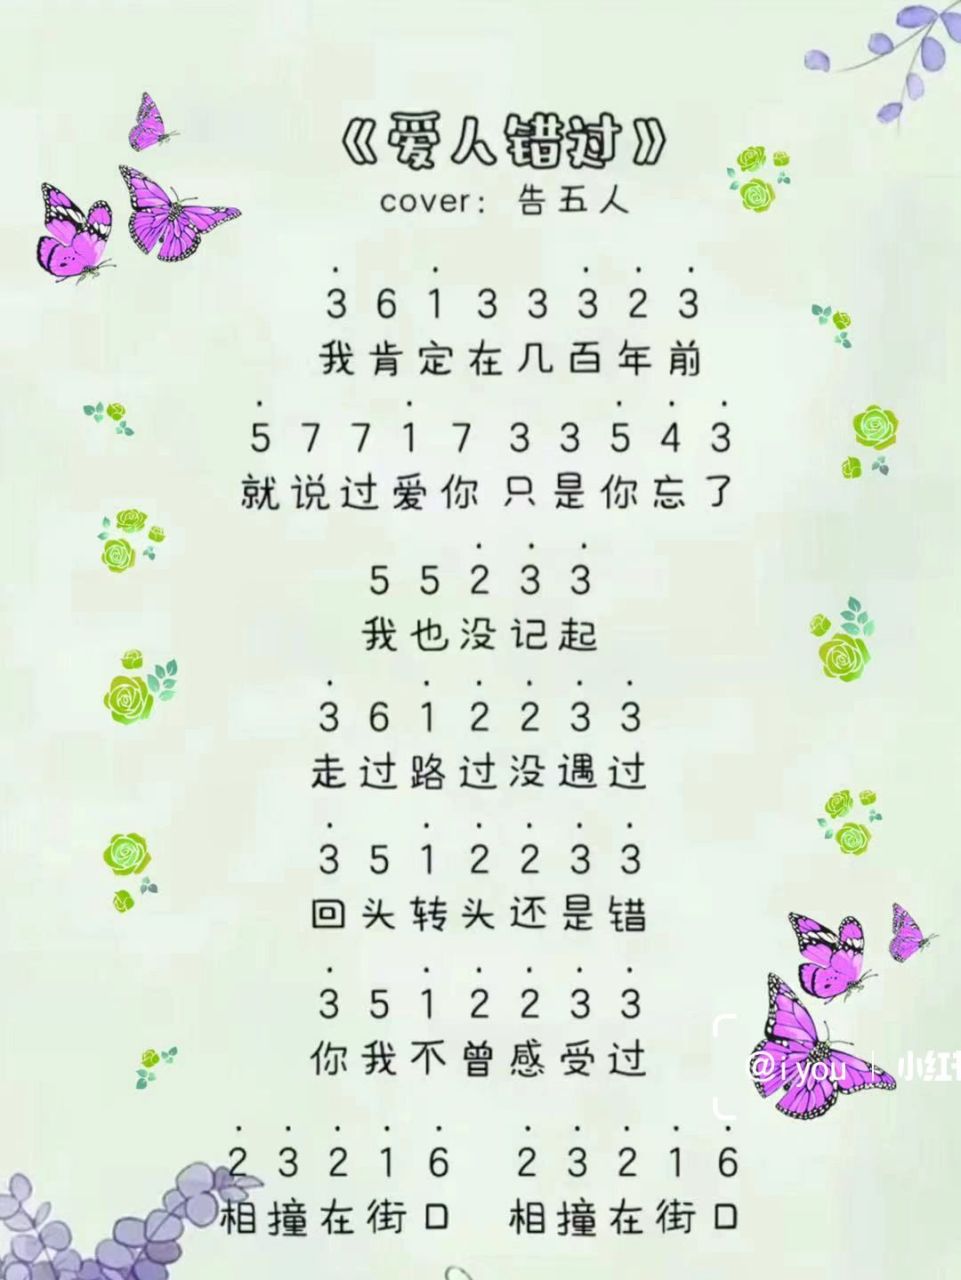 《爱人错过》
cover：告五人
3̇ 6 1̇ 3 3 3̇ 2̇ 3̇
我肯定在几百年前
5̇ 7 7 1̇ 7 3 3 5̇ 4̇ 3̇
就说过爱你 只是你忘了
5 5 2̇ 3̇ 3̇
我也没记起
3̇ 6 1̇ 2̇ 2̇ 3̇ 3̇
走过路过没遇过
3̇ 5 1̇ 2̇ 2̇ 3̇ 3̇
回头转头还是错
3̇ 5 1̇ 2̇ 2̇ 3̇ 3̇
你我不曾感受过
@i you | 小红
2̇ 3̇ 2̇ 1̇ 6̇ 2̇ 3̇ 2̇ 1̇ 6̇
相撞在街口 相撞在街口